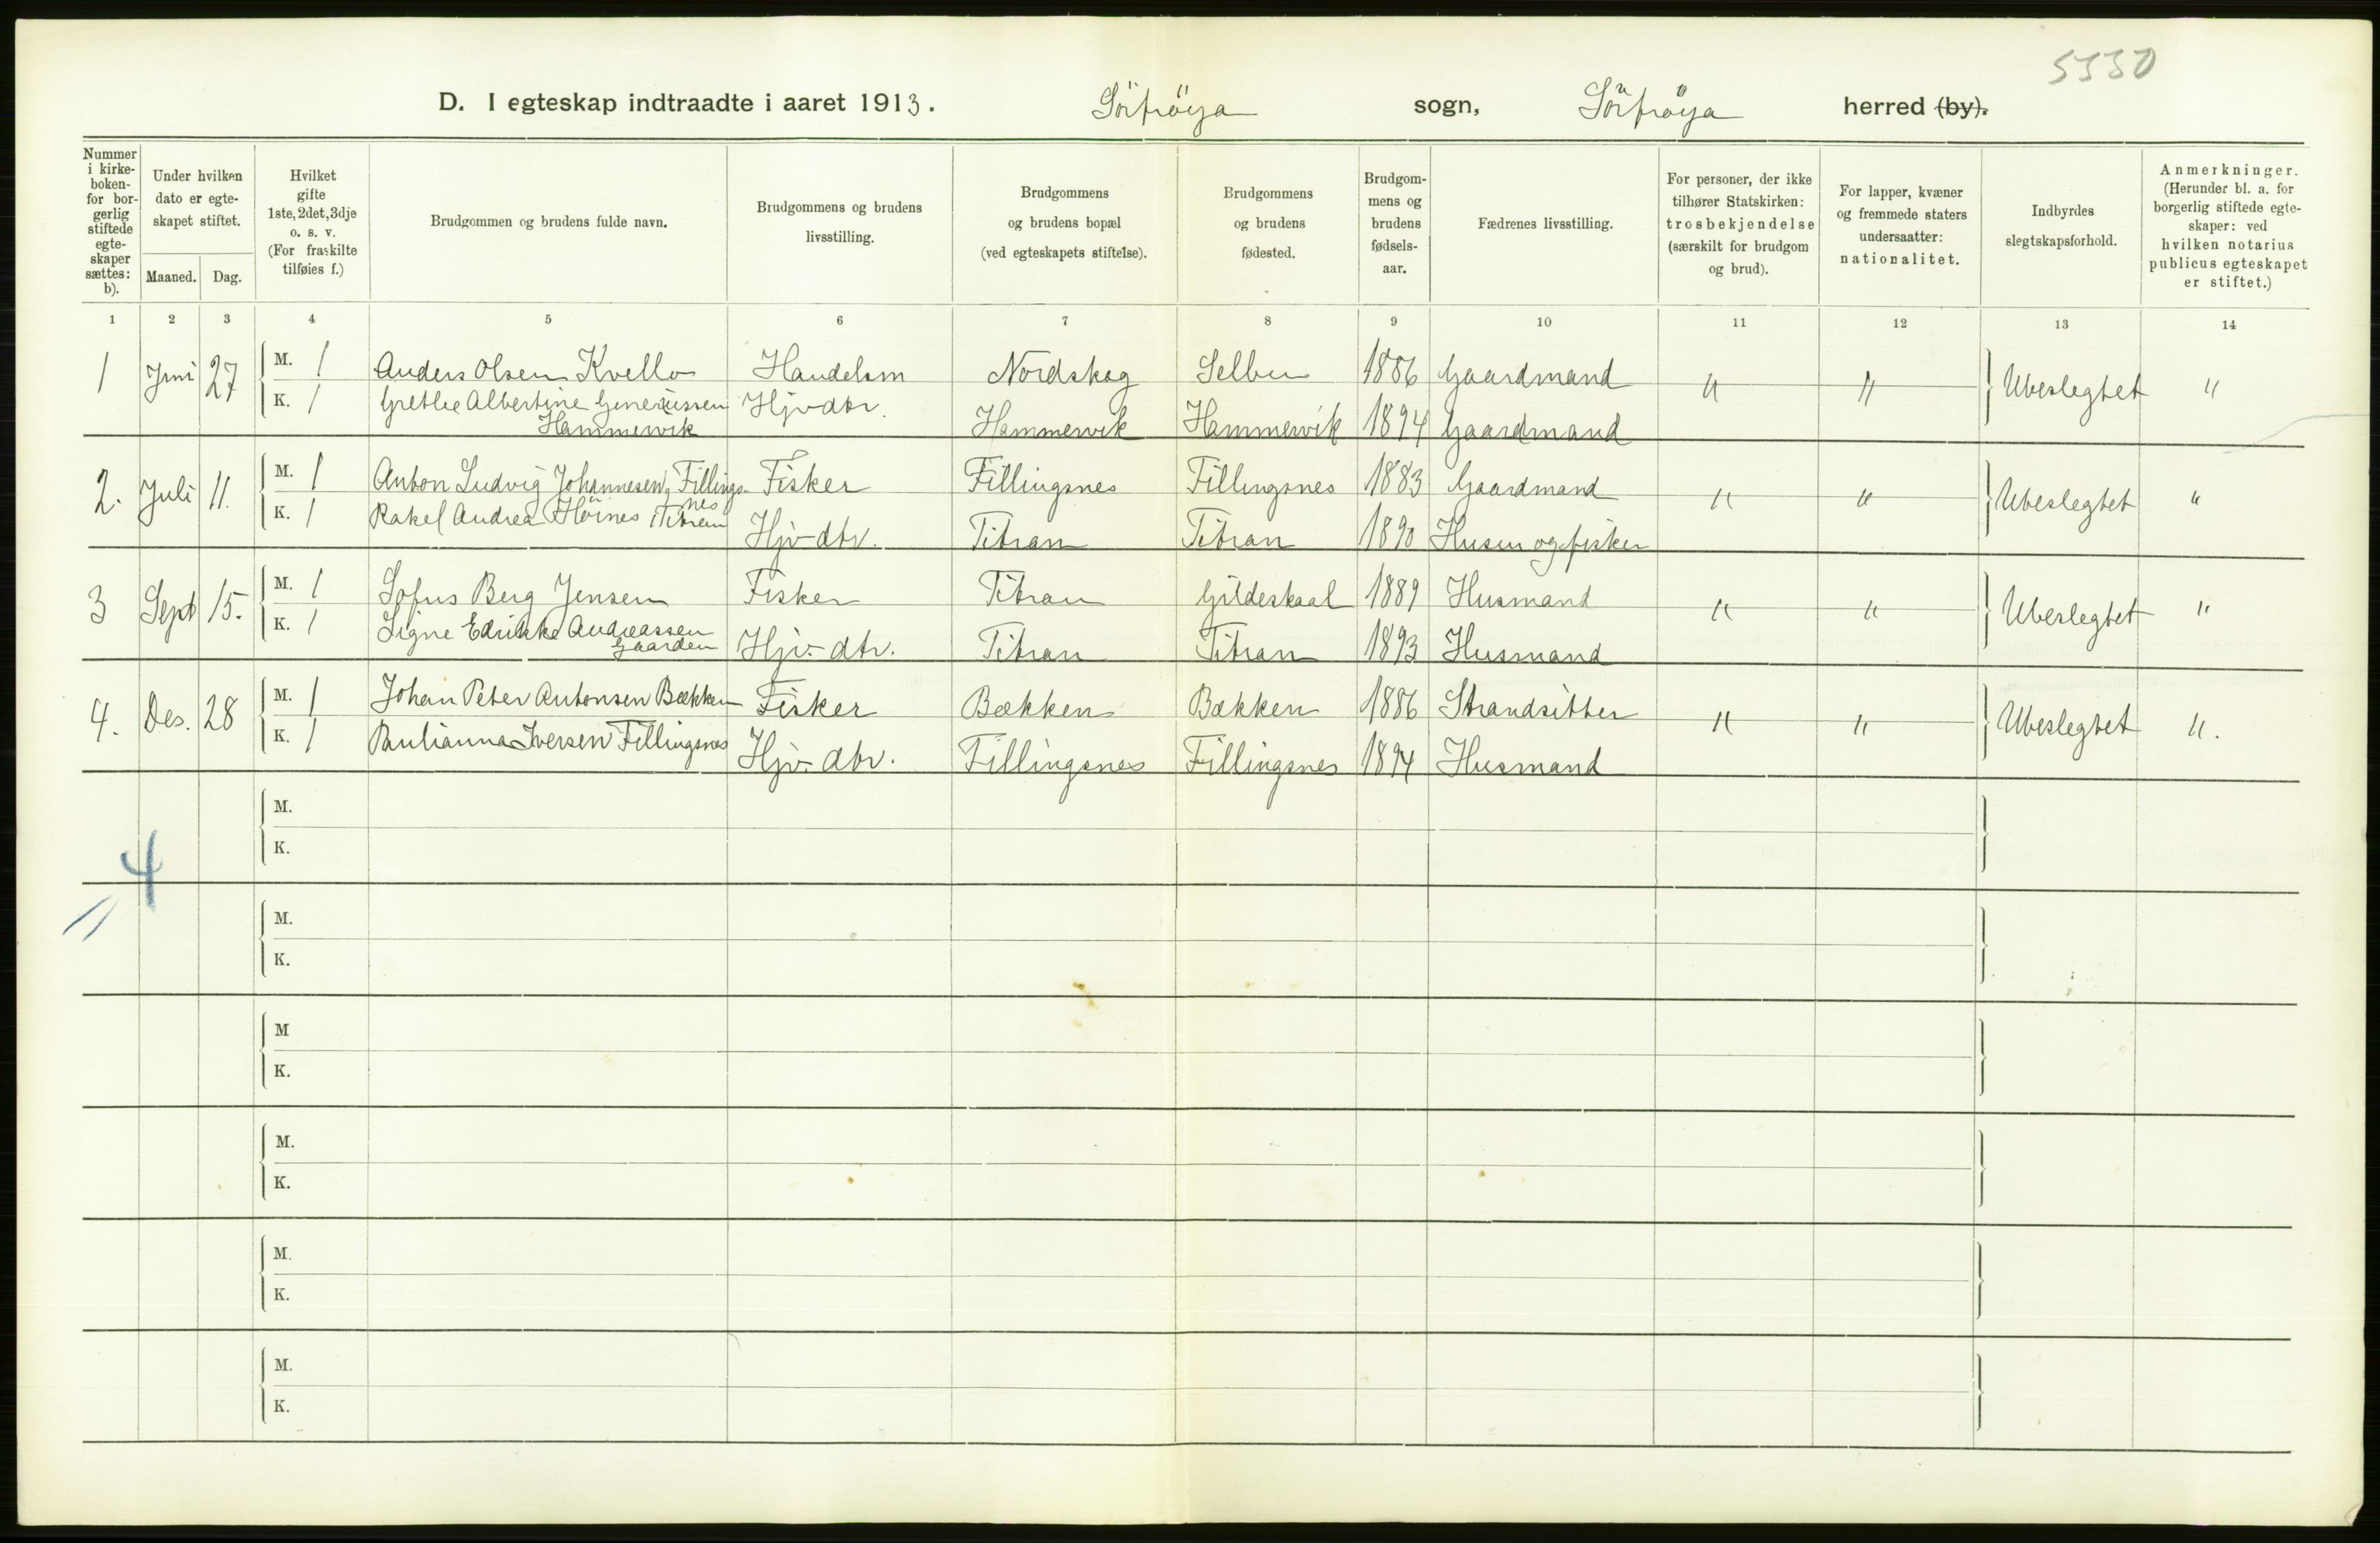 5330
D. I egteskap indtraadte i aaret 1913. Sörfröya sogn, Sörfröya herred (by).
Nummer i kirke-boken- for bor-gerlig stiftede egte-skaper sættes: b).
Under hvilken dato er egte-skapet stiftet.
Maaned. Dag.
Hvilket gifte 1ste, 2det, 3dje o. s. v. (For fraskilte tilføies f.)
Brudgommen og brudens fulde navn.
Brudgommens og brudens livsstilling.
Brudgommens og brudens bopæl (ved egteskapets stiftelse).
Brudgommens og brudens fødested.
Brudgom-mens og brudens fødsels-aar.
Fædrenes livsstilling.
For personer, der ikke tilhører Statskirken: trosbekjendelse (særskilt for brudgom og brud).
For lapper, kvæner og fremmede staters undersaatter: nationalitet.
Indbyrdes slegtskapsforhold.
Anmerkninger. (Herunder bl. a. for borgerlig stiftede egte-skaper: ved hvilken notarius publicus egteskapet er stiftet.)
1 2 3 4 5 6 7 8 9 10 11 12 13 14
1 Juni 27 M. 1 Anders Olsen Kvello Handelsm Nordskag Selbu 1886 Gaardmand " " Ubeslegtet "
K. 1 Grethe Albertine Hjv dtr. Hammervik Hammervik 1894 Gaardmand
Hammervik
2. Juli 11. M. 1 Anton Ludvig Johannesen Fillings- Fisker Fillingsnes Fillingsnes 1883 Gaardmand " " Ubeslegtet "
nes
K. 1 Rakel Andrea Höines Titran Hjv dtr. Titran Titran 1890 Husm og fisker
3 Sept 15. M. 1 Sofus Berg Jensen Fisker Titran Gildeskaal 1889 Husmand " " Ubeslegtet "
K. 1 Signe Edrikke Andreassen Hjv. dtr. Titran Titran 1893 Husmand
Gaarden
4. Des. 28 M. 1 Johan Peter Antonsen Bækken Fisker Bækken Bækken 1886 Strandsitter " " Ubeslegtet ".
K. 1 Paulianna Iversen Fillingsnes Hjv. dtr. Fillingsnes Fillingsnes 1894 Husmand
M.
K.
4
M.
K.
M
K.
M.
K.
M.
K.
M.
K.